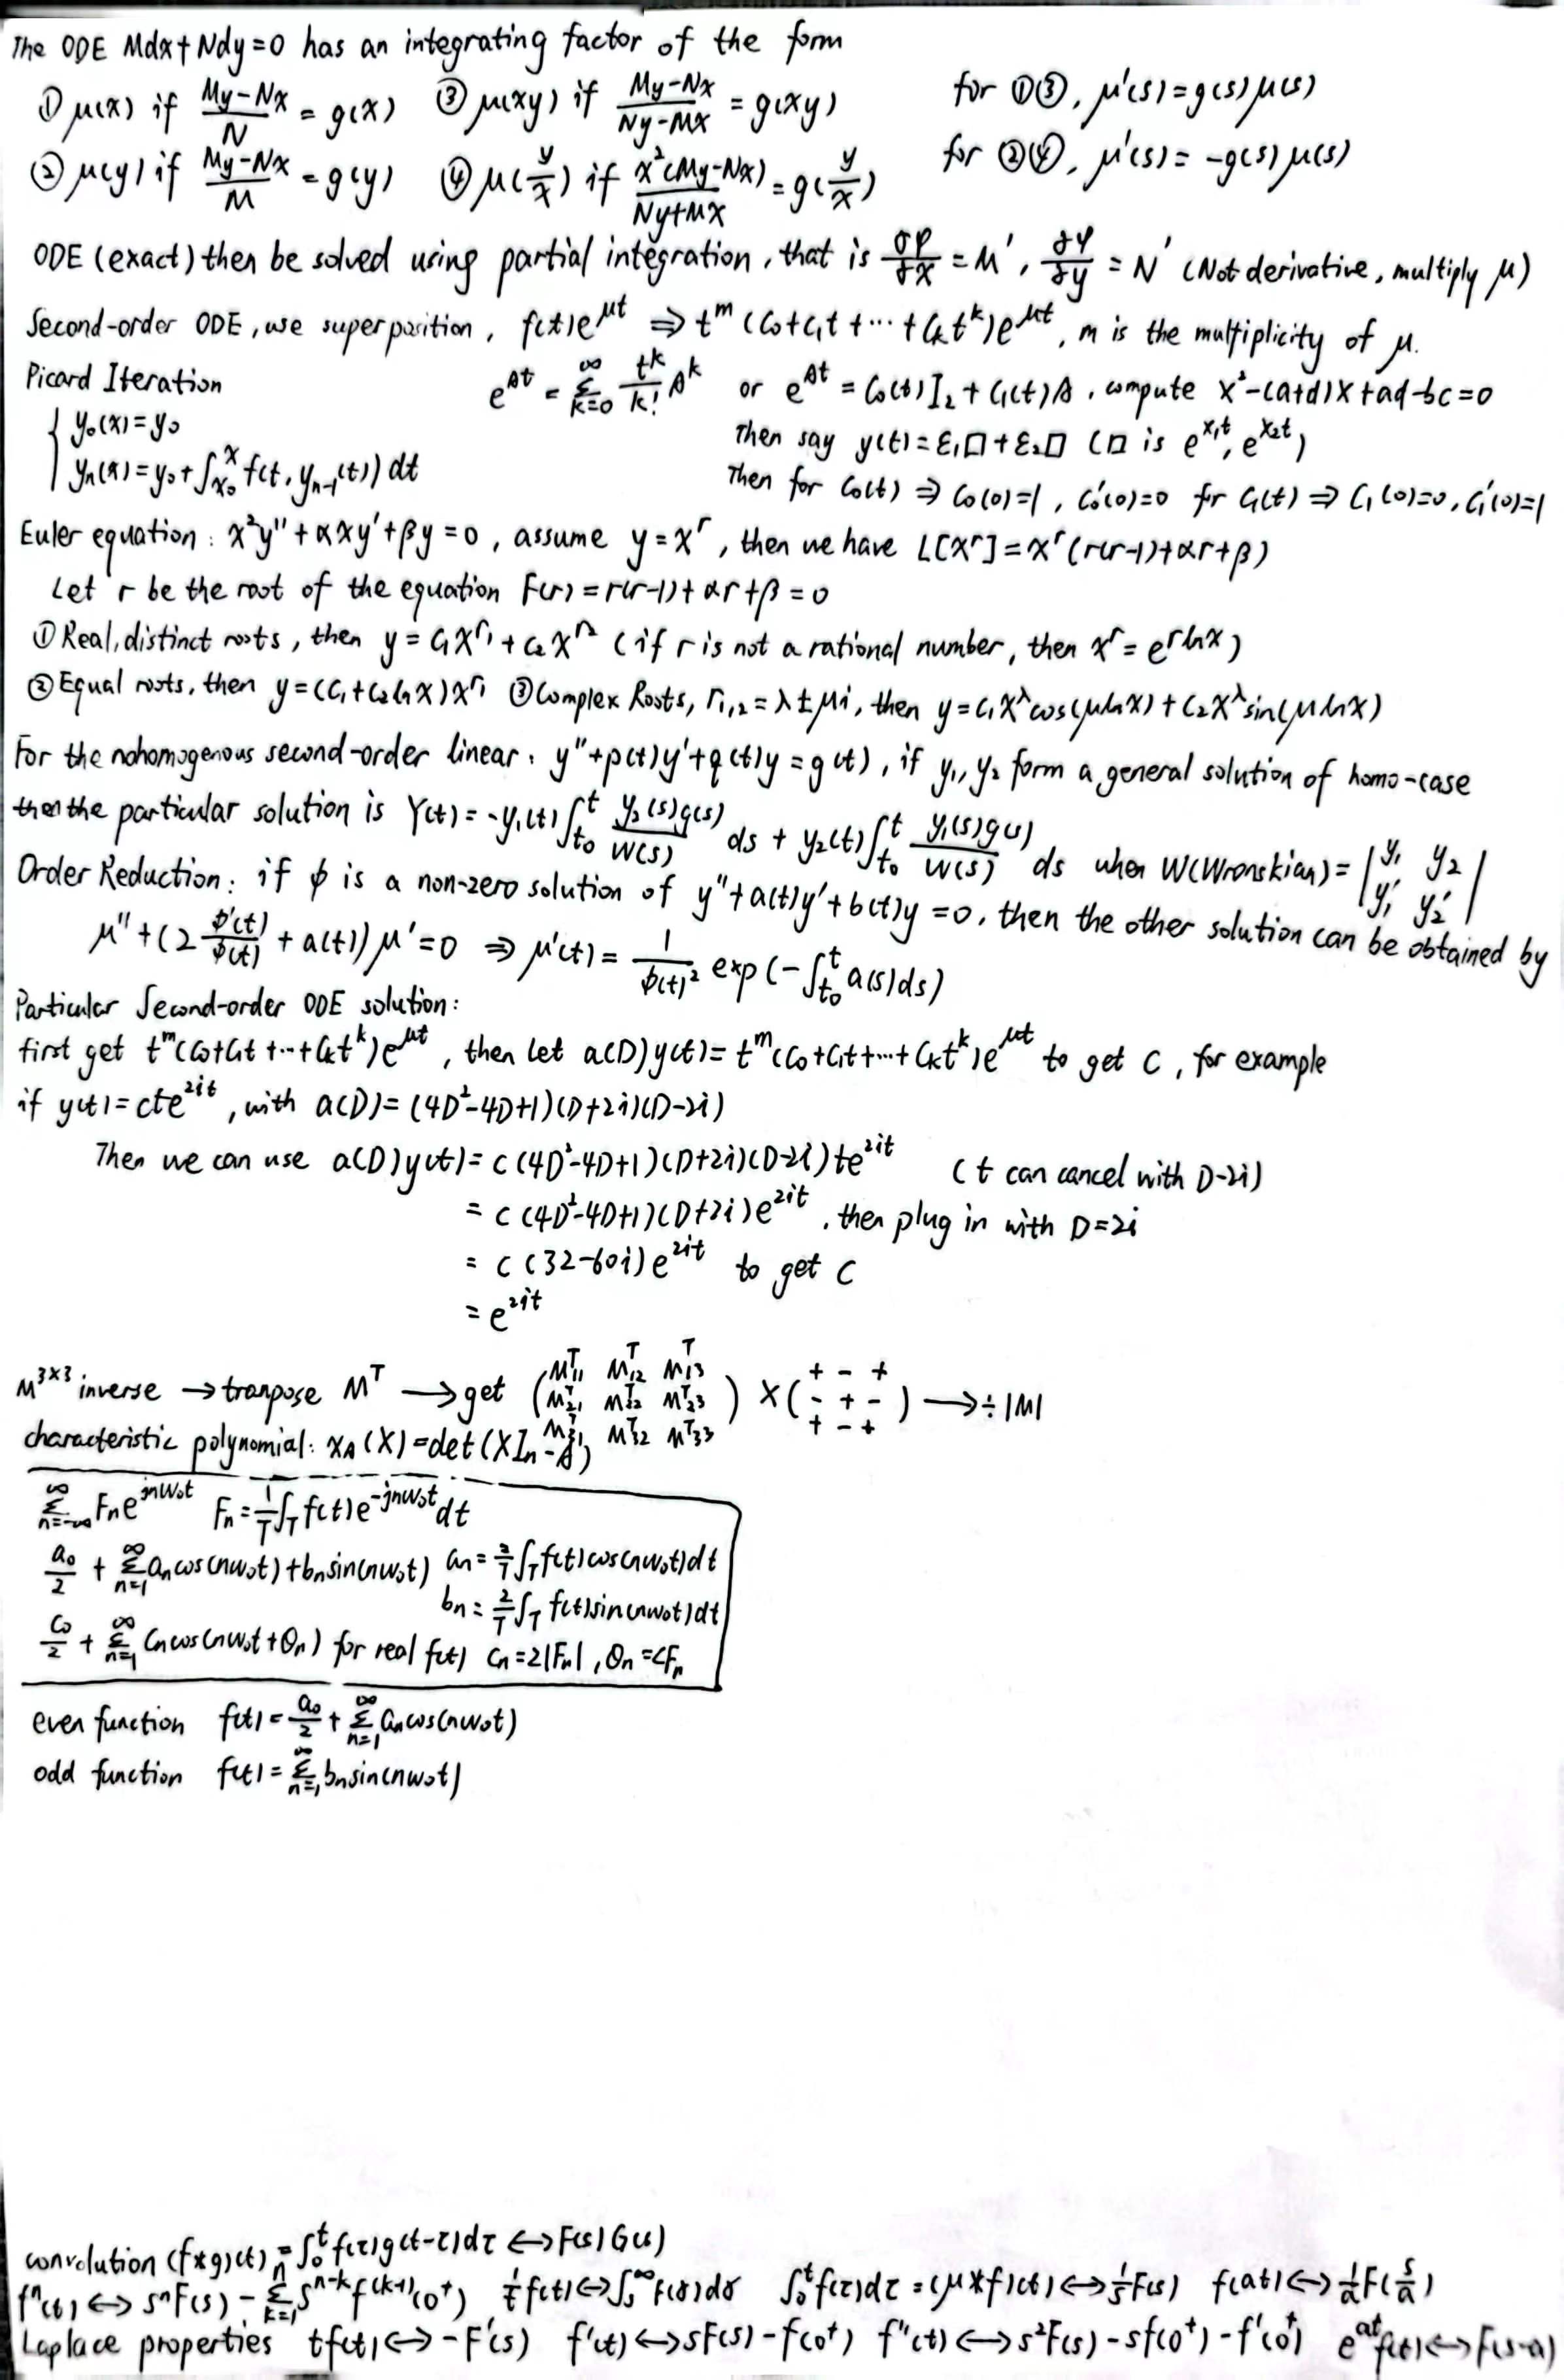 The ODE Mdx+Ndy=0 has an integrating factor of the form
① μ(x) if (My-Nx)/N = g(x) ③ μ(xy) if (My-Nx)/(Ny-Mx) = g(xy) for ①③, μ'(s)=g(s)μ(s)
② μ(y) if (My-Nx)/M = g(y) ④ μ(y/x) if x²(My-Nx)/(Ny+Mx) = g(y/x) for ②④, μ'(s) = -g(s)μ(s)
ODE (exact) then be solved using partial integration, that is ∂φ/∂x = M', ∂φ/∂y = N' (Not derivative, multiply μ)
Second-order ODE, use superposition, f(t)e^{μt} ⇒ t^m (C0+C1t+⋯+Ckt^k)e^{μt}, m is the multiplicity of μ.
Picard Iteration e^{At} = Σ_{k=0}^{∞} t^k/k! A^k or e^{At} = C0(t)I2 + C1(t)A, compute X²-(a+d)X+ad-bc=0
{ y0(x)=y0 Then say y(t)=ε1□+ε2□ (□ is e^{x1t}, e^{x2t})
yn(x)=y0+∫_{x0}^{x} f(t, y_{n-1}(t)) dt Then for C0(t) ⇒ C0(0)=1, C0'(0)=0 for C1(t) ⇒ C1(0)=0, C1'(0)=1
Euler equation: x²y''+αxy'+βy=0, assume y=x^r, then we have L[x^r]=x^r(r(r-1)+αr+β)
Let r be the root of the equation F(r)=r(r-1)+αr+β=0
① Real, distinct roots, then y=C1x^{r1}+C2x^{r2} (if r is not a rational number, then x^r=e^{rlnx})
② Equal roots, then y=(C1+C2lnx)x^{r1} ③ Complex Roots, r1,2=λ±μi, then y=C1x^λcos(μlnx)+C2x^λsin(μlnx)
For the nohomogenous second-order linear: y''+p(t)y'+q(t)y=g(t), if y1, y2 form a general solution of homo-case
then the particular solution is Y(t)=-y1(t)∫_{t0}^{t} y2(s)g(s)/W(s) ds + y2(t)∫_{t0}^{t} y1(s)g(s)/W(s) ds when W(Wronskian)=|y1 y2; y1' y2'|
Order Reduction: if ϕ is a non-zero solution of y''+a(t)y'+b(t)y=0, then the other solution can be obtained by
μ''+(2 ϕ'(t)/ϕ(t) + a(t))μ'=0 ⇒ μ'(t)= 1/ϕ(t)² exp(-∫_{t0}^{t} a(s)ds)
Particular Second-order ODE solution:
first get t^m(C0+C1t+⋯+Ckt^k)e^{μt}, then let a(D)y(t)=t^m(C0+C1t+⋯+Ckt^k)e^{μt} to get C, for example
if y(t)=cte^{2it}, with a(D)=(4D²-4D+1)(D+2i)(D-2i)
Then we can use a(D)y(t)=c(4D²-4D+1)(D+2i)(D-2i)te^{2it} (t can cancel with D-2i)
= c(4D²-4D+1)(D+2i)e^{2it}, then plug in with D=2i
= c(32-60i)e^{2it} to get C
= e^{2it}
M^{3×3} inverse → tranpose M^T → get (M^T11 M^T12 M^T13; M^T21 M^T22 M^T23; M^T31 M^T32 M^T33) × (+ - +; - + -; + - +) → ÷|M|
characteristic polynomial: χA(X)=det(XIn-A)
Σ_{n=-∞}^{∞} Fne^{jnω0t} Fn = 1/T ∫_T f(t)e^{-jnω0t}dt
a0/2 + Σ_{n=1}^{∞} an cos(nω0t)+bnsin(nω0t) an = 2/T ∫_T f(t)cos(nω0t)dt
bn = 2/T ∫_T f(t)sin(nω0t)dt
C0/2 + Σ_{n=1}^{∞} Cncos(nω0t+θn) for real f(t) Cn=2|Fn|, θn=∠Fn
even function f(t)=a0/2 + Σ_{n=1}^{∞} ancos(nω0t)
odd function f(t)=Σ_{n=1}^{∞} bnsin(nω0t)
convolution (f*g)(t) = ∫_0^t f(τ)g(t-τ)dτ ↔ F(s)G(s)
f^n(t) ↔ s^nF(s) - Σ_{k=1}^{n} s^{n-k}f^{(k-1)}(0⁺) 1/t f(t) ↔ ∫_s^∞ F(σ)dσ ∫_0^t f(τ)dτ=(μ*f)(t) ↔ 1/s F(s) f(at) ↔ 1/a F(s/a)
Laplace properties tf(t) ↔ -F'(s) f'(t) ↔ sF(s)-f(0⁺) f''(t) ↔ s²F(s)-sf(0⁺)-f'(0⁺) e^{at}f(t) ↔ F(s-a)